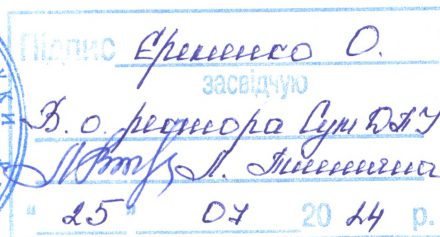 Підпис Єременко О.
засвідчую
В. о. ректора СумДПУ
Л. Пшенична
"25" 07 2024 р.